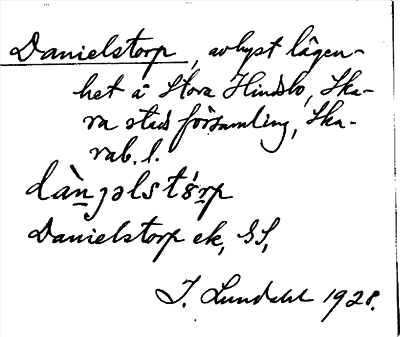 Danielstorp, avhyst lägen-
het å Stora Hindsbo, Ska-
ra stads församling, Ska-
rab. l.
dàn̲ɟəlstó̤r̲p
Danielstorp ek, GS,
I. Lundahl 1928.